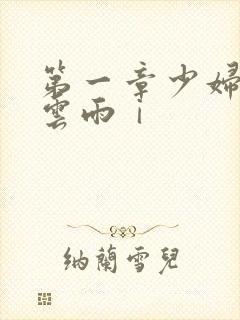 第一章少婦
雲雨|
納蘭雪兒